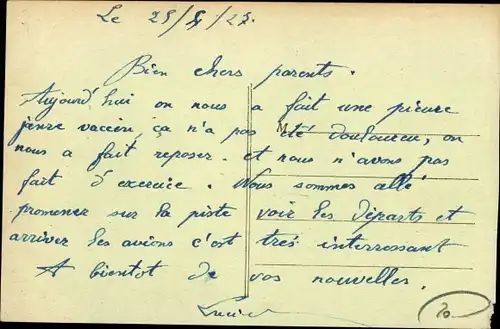 Le 25/5/27.
Bien chers parents.
Aujourd'hui on nous a fait une piqure
genre vaccin, ça n'a pas été douloureux, on
nous a fait reposer. et nous n'avons pas
fait d'exercice. Nous sommes allé
promener sur la piste voir les départs et
arriver les avions c'est tres interressant
A bientot de vos nouvelles.
Lucien
70